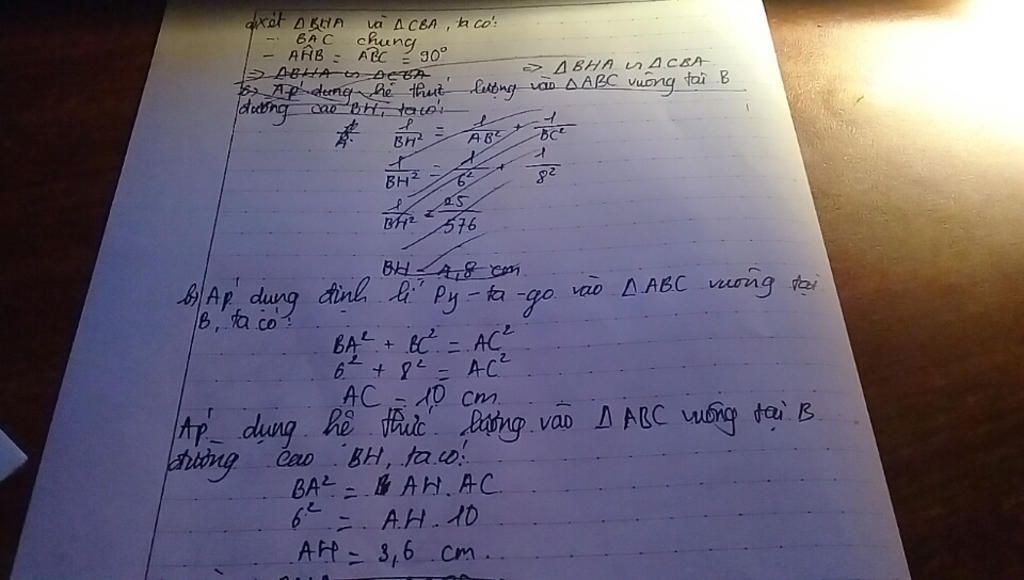 a) Xét ΔBHA và ΔCBA, ta có:
- BAC chung
- AHB = ABC = 90°
=> ΔBHA ∽ ΔCBA => ΔBHA ∽ ΔCBA
b) Áp dụng hệ thức lượng vào ΔABC vuông tại B
đường cao BH, ta có:
1/BH² = 1/AB² + 1/BC²
1/BH² = 1/6² + 1/8²
1/BH² = 25/576
BH = 4,8 cm
b) Áp dụng định lí Py-ta-go vào ΔABC vuông tại
B, ta có:
BA² + BC² = AC²
6² + 8² = AC²
AC = 10 cm
Áp dụng hệ thức lượng vào ΔABC vuông tại B
đường cao BH, ta có:
BA² = AH.AC
6² = AH.10
AH = 3,6 cm.